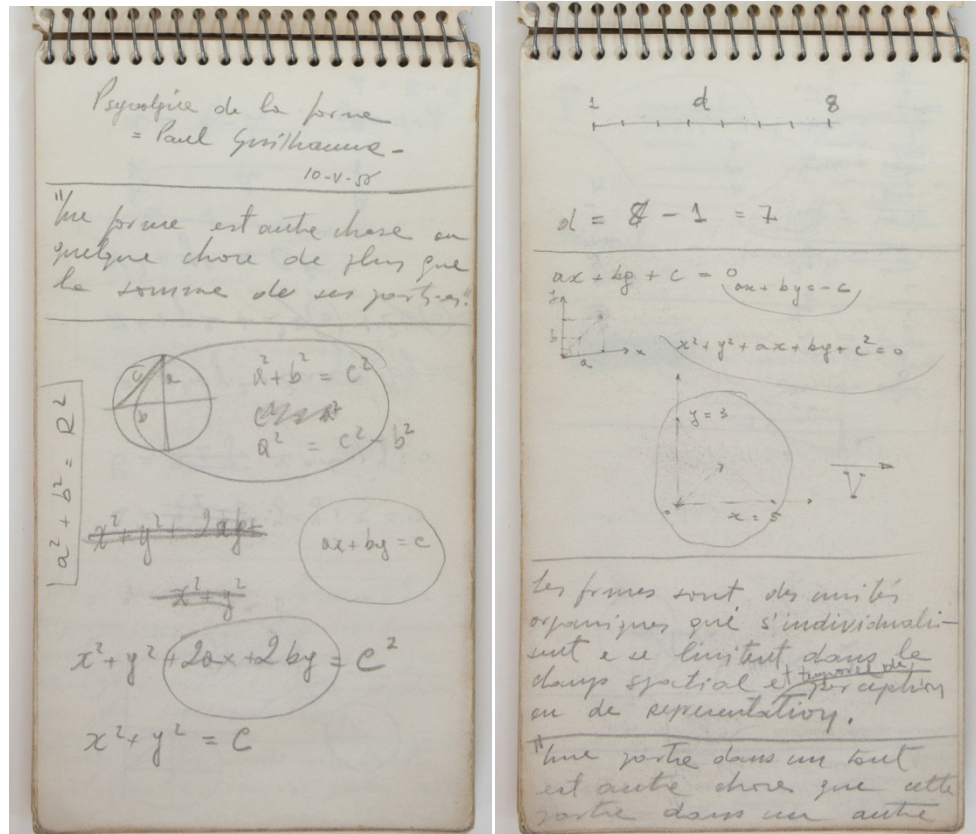 Psycologie de la forme
= Paul Guilhaume -
10-V-58
"Une forme est autre chose ou
quelque chose de plus que
la somme de ses parties."
c a
b
a² + b² = c²
a² = c² - b²
a² + b² = R²
x² + y² + 2aby²
ax + by = c
x² + y²
x² + y² + 2ax + 2by = c²
x² + y² = c
1 d 8
d = 8 - 1 = 7
ax + by + c = 0
ax + by = -c
y
b
a
x
x² + y² + ax + by + c² = 0
y = 3
V
0
x = 5
Les formes sont des unités
organiques qui s'individuali-
sent e se limitent dans le
champ spatial et temporel de
perception
ou de representation.
"Une partie dans un tout
est autre chose que cette
partie dans un autre